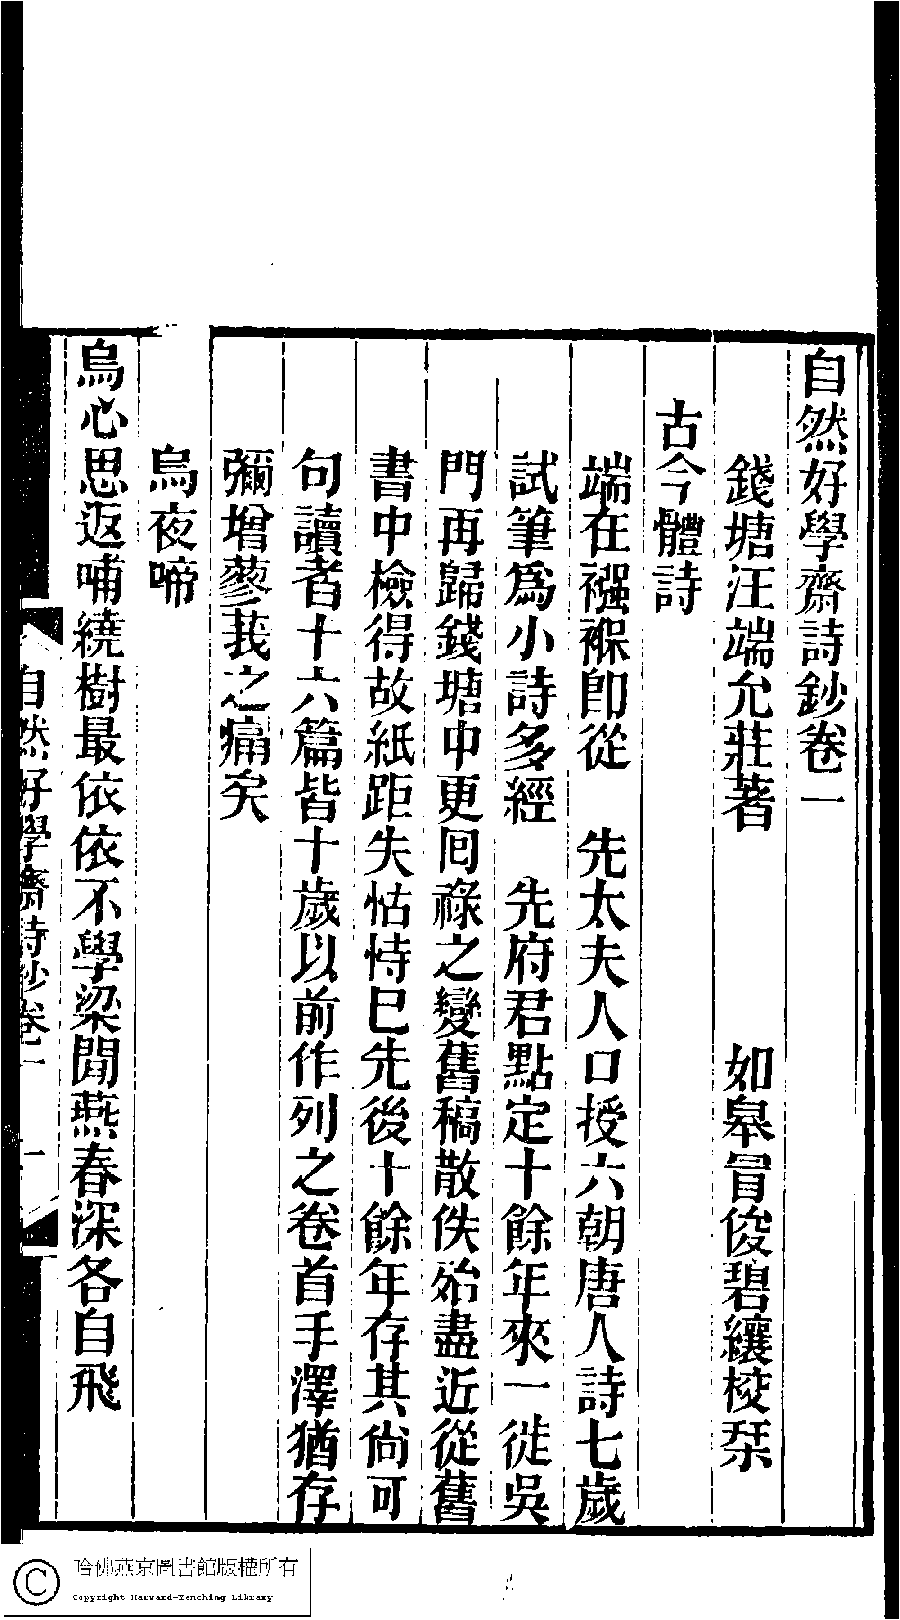 自然好學齋詩鈔卷一
錢塘汪端允莊著　如皋冒俊碧纕校栞
古今體詩
端在襁褓卽從　先太夫人口授六朝唐人詩七歲
試筆爲小詩多經　先府君點定十餘年來一徙吳
門再歸錢塘中更囘祿之變舊稿散佚殆盡近從舊
書中檢得故紙距失怙恃巳先後十餘年存其尙可
句讀者十六篇皆十歲以前作列之卷首手澤猶存
彌增蓼莪之痛矣
烏夜啼
烏心思返哺繞樹最依依不學梁閒燕春深各自飛
自然好學齋詩鈔卷一　一
哈佛燕京圖書館版權所有
Copyright Harvard-Yenching Library